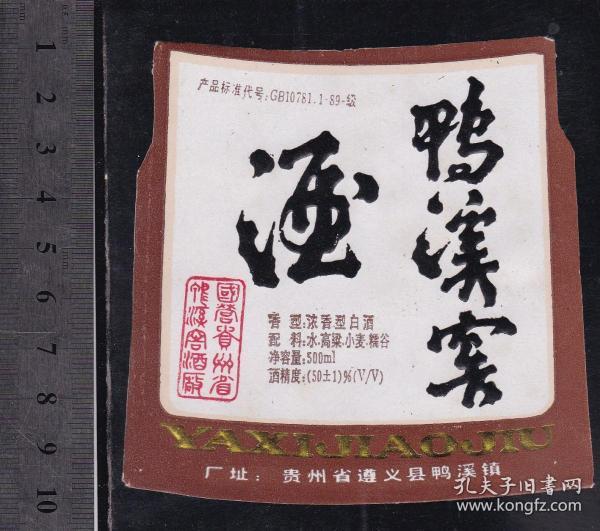 产品标准代号:GB10781.1-89-级
鸭溪窖
酒
國营貴州省
鴨溪窖酒廠
香 型:浓香型白酒
配 料:水.高粱.小麦.糯谷
净容量:500ml
酒精度:(50±1)%(V/V)
YAXIJIAOJIU
厂址：贵州省遵义县鸭溪镇
1
2
3
4
5
6
7
8
9
10
孔夫子旧书网
www.kongfz.com